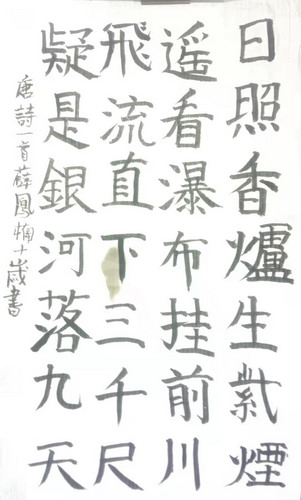 日照香爐生紫煙
遥看瀑布挂前川
飛流直下三千尺
疑是銀河落九天
唐詩一首薛鳳炯十歲書